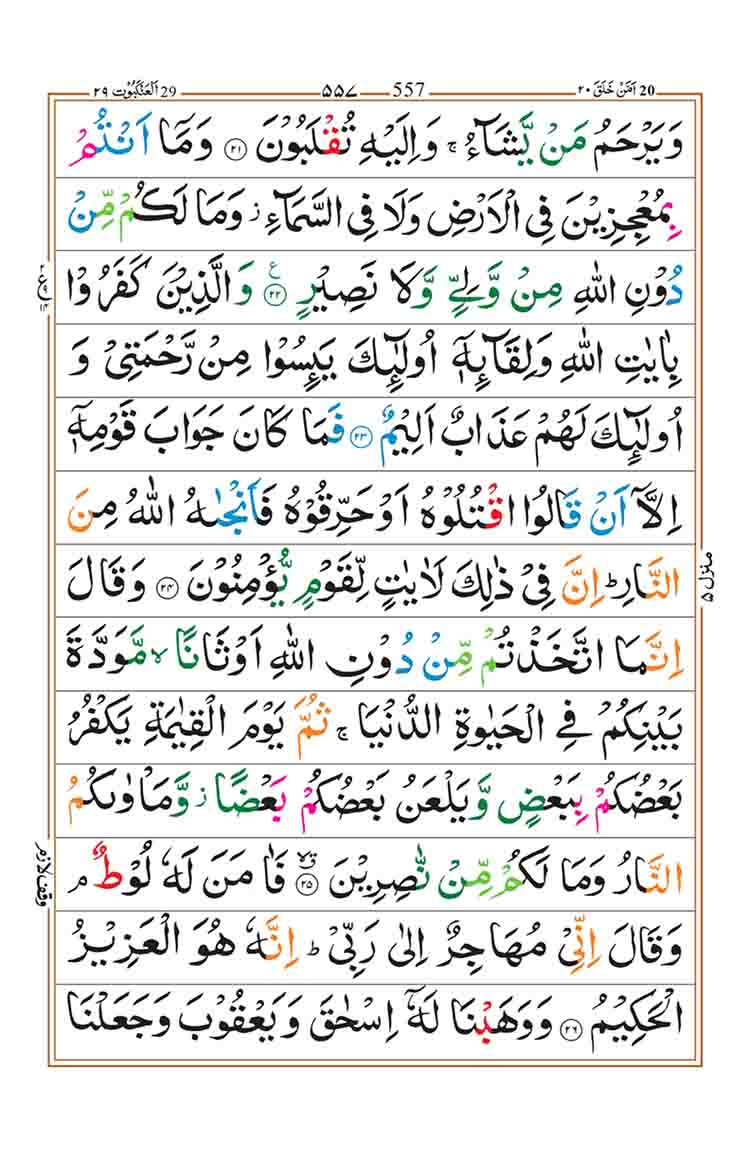 20 اَمَّنْ خَلَقَ ٢٠
557 ٥٥٧
29 اَلْعَنْكَبُوْت ٢٩
وَيَرْحَمُ مَنْ يَّشَآءُ ۚ وَاِلَيْهِ تُقْلَبُوْنَ ﴿٢١﴾ وَمَآ اَنْتُمْ
بِمُعْجِزِيْنَ فِى الْاَرْضِ وَلَا فِى السَّمَآءِ ۡ وَمَا لَكُمْ مِّنْ
دُوْنِ اللّٰهِ مِنْ وَّلِىٍّ وَّلَا نَصِيْرٍ ﴿٢٢﴾ ع وَالَّذِيْنَ كَفَرُوْا
بِاٰيٰتِ اللّٰهِ وَلِقَآئِهٖٓ اُولٰٓئِكَ يَئِسُوْا مِنْ رَّحْمَتِىْ وَ
اُولٰٓئِكَ لَهُمْ عَذَابٌ اَلِيْمٌ ﴿٢٣﴾ فَمَا كَانَ جَوَابَ قَوْمِهٖٓ
اِلَّآ اَنْ قَالُوا اقْتُلُوْهُ اَوْ حَرِّقُوْهُ فَاَنْجٰىهُ اللّٰهُ مِنَ
النَّارِ ؕ اِنَّ فِىْ ذٰلِكَ لَاٰيٰتٍ لِّقَوْمٍ يُّؤْمِنُوْنَ ﴿٢٤﴾ وَقَالَ
اِنَّمَا اتَّخَذْتُمْ مِّنْ دُوْنِ اللّٰهِ اَوْثَانًا ۙ مَّوَدَّةَ
بَيْنِكُمْ فِى الْحَيٰوةِ الدُّنْيَا ۚ ثُمَّ يَوْمَ الْقِيٰمَةِ يَكْفُرُ
بَعْضُكُمْ بِبَعْضٍ وَّيَلْعَنُ بَعْضُكُمْ بَعْضًا ۡ وَّمَاْوٰىكُمُ
النَّارُ وَمَا لَكُمْ مِّنْ نّٰصِرِيْنَ ﴿٢٥﴾ فَاٰمَنَ لَهٗ لُوْطٌ ۘ
وَقَالَ اِنِّىْ مُهَاجِرٌ اِلٰى رَبِّىْ ؕ اِنَّهٗ هُوَ الْعَزِيْزُ
الْحَكِيْمُ ﴿٢٦﴾ وَوَهَبْنَا لَهٗٓ اِسْحٰقَ وَيَعْقُوْبَ وَجَعَلْنَا
منزل ٥
وقف لازم